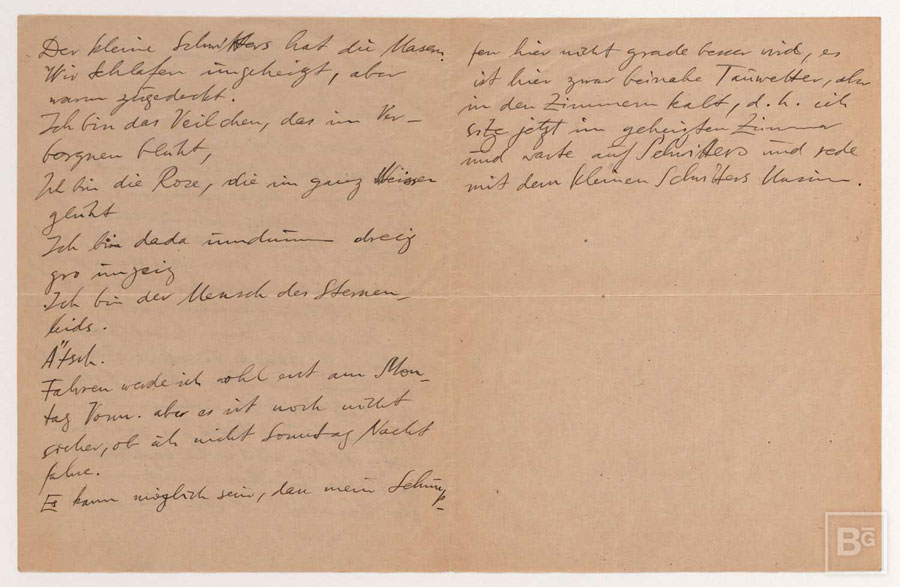 Der kleine Schwitters hat die Masern.
Wir schlafen ungeheizt, aber
warm zugedeckt.
Ich bin das Veilchen, das im Ver-
borgnen blüht,
Ich bin die Rose, die im ganz
glüht
Ich bin dada dreizig
gro
Ich bin der Mensch des Sternen-
leids.
Ätsch.
Fahren werde ich wohl erst am Mon-
tag Vorm. aber es ist noch nicht
sicher, ob ich nicht Sonntag Nacht
fahre.
Es kann möglich sein, dass mein Schnup-
fen hier nicht grade besser wird, es
ist hier zwar beinahe Tauwetter, aber
in den Zimmern kalt, d.h. ich
sitze jetzt im geheizten Zimmer
und warte auf Schwitters und rede
mit dem kleinen Schwitters Unsinn.
BG